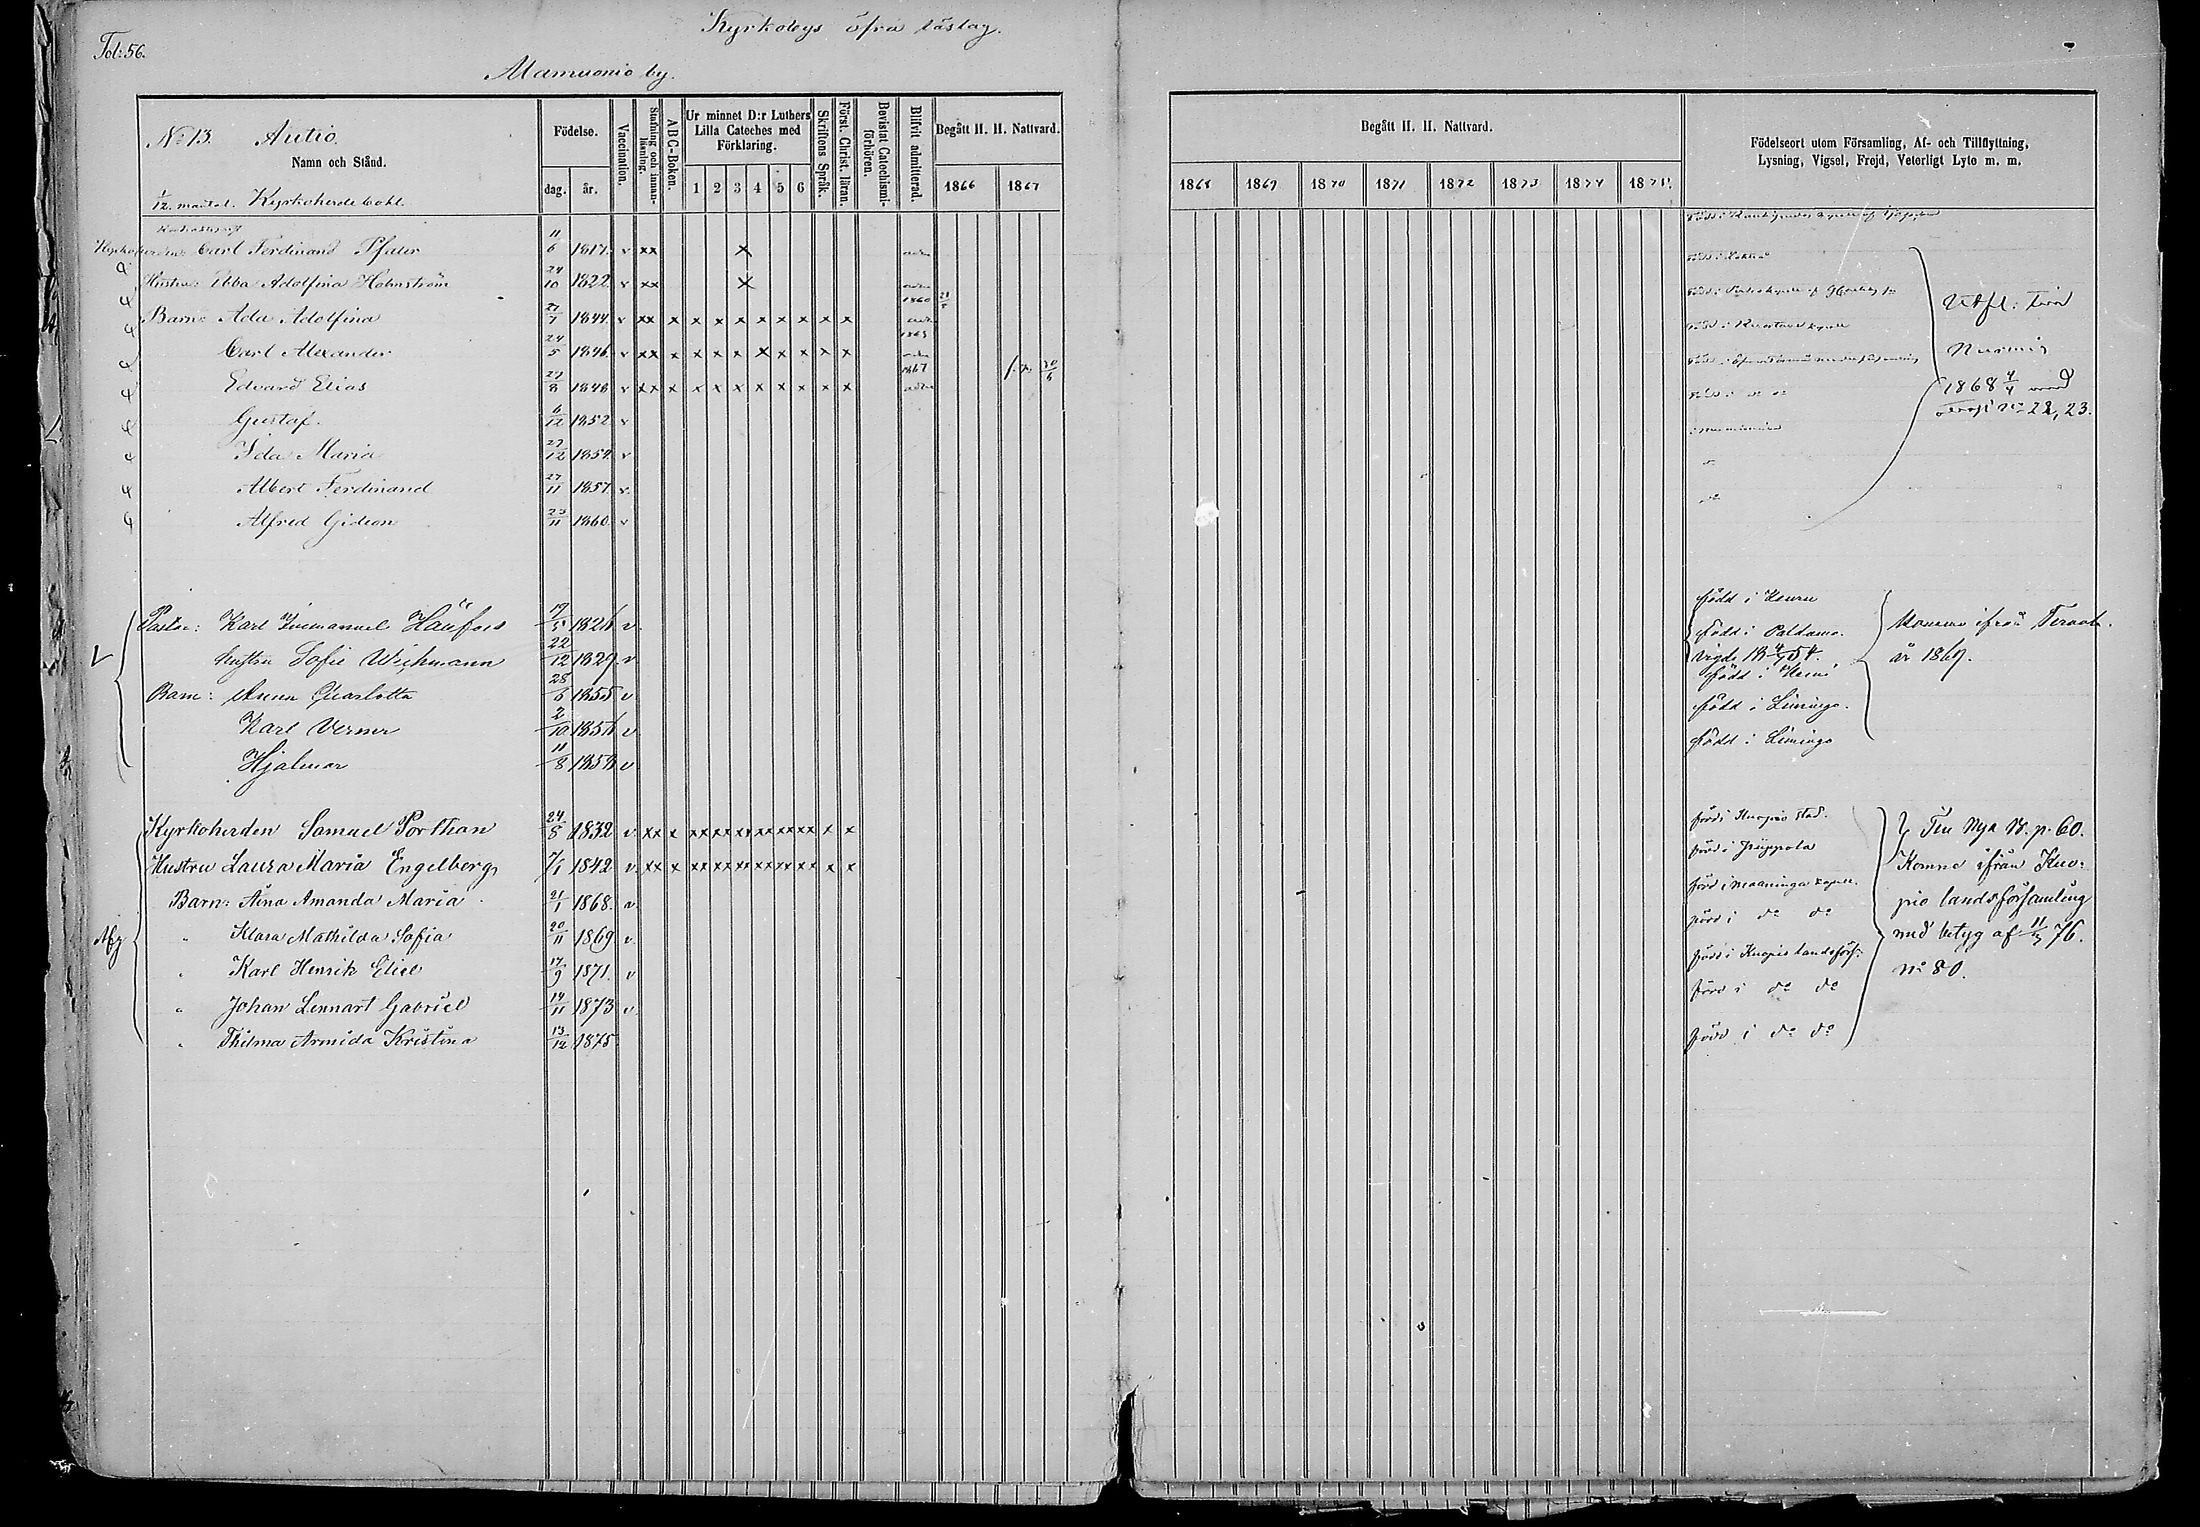 Fol: 56.
Kyrkobys öfra läslag.
Mamuonio by.
No 13. Autio.
Namn och Stånd.
1/12 mantal. Kyrkoherde bohl.
Födelse.
dag. år.
Vaccination.
Stafning och innanläsning.
ABC-Boken.
Ur minnet D:r Luthers Lilla Cateches med Förklaring.
1 2 3 4 5 6
Skriftens Språk.
Först. Christ. läran.
Bevistat Catechismiförhören.
Blifvit admitterad.
Begått H. H. Nattvard.
1866 1867
Begått H. H. Nattvard.
1868 1869 1870 1871 1872 1873 1874 1875.
Födelseort utom Församling, Af- och Tillflyttning,
Lysning, Vigsel, Frejd, Veterligt Lyte m. m.
Carl Ferdinand Pfaler 11/6 1817. v xx x
Hustru: Ebba Adolfina Holmström 24/10 1822 v xx x
Barn: Ada Adolfina 27/7 1844 v xx x x x x x x x x x 1860
Carl Alexander 24/5 1846 v xx x x x x x x x x x
Edvard Elias 27/8 1848 v xx x x x x x x x x x 1867
Gustaf. 6/12 1852 v
Ida Maria 27/12 1854 v
Albert Ferdinand 27/11 1857 v
Alfred Gideon 23/11 1860 v
Utfl. till
Nurmis
1868 4/4 med
No 22, 23.
Pastor: Karl Immanuel 19/5 1826 v. född i Keuru
hustru Sofie Wichmann 22/12 1829 v född i Paldamo.
vigde 18 4/7 54.
Barn: Anna Charlotta 28/6 1855 v född i Kemi
Karl Verner 2/10 1856 v född i Limingo.
Hjalmar 11/8 1858 v född i Limingo
Komna ifrån
år 1869.
Kyrkoherden Samuel Porthan 24/8 1832 v. xx x xx xx xx xx xx xx x x född i Kuopio stad.
Hustru Laura Maria Engelberg 7/1 1842 v. xx x xx xx xx xx xx xx x x född i Jüppola
Barn: Aina Amanda Maria 21/1 1868. v. född i Maaninga kapell.
" Klara Mathilda Sofia 20/11 1869 v. född i do do
" Karl Henrik Eliel 17/9 1871. v född i Kuopio landsförs:
" Johan Lennart Gabriel 14/11 1873 v född i do do
" Thilma Armida Kristina 13/12 1875 född i do do
Afg
Till Nya B. p. 60.
Komne ifrån Kuo-
pio landsförsamling
med betyg af 11/3 76.
No 80.